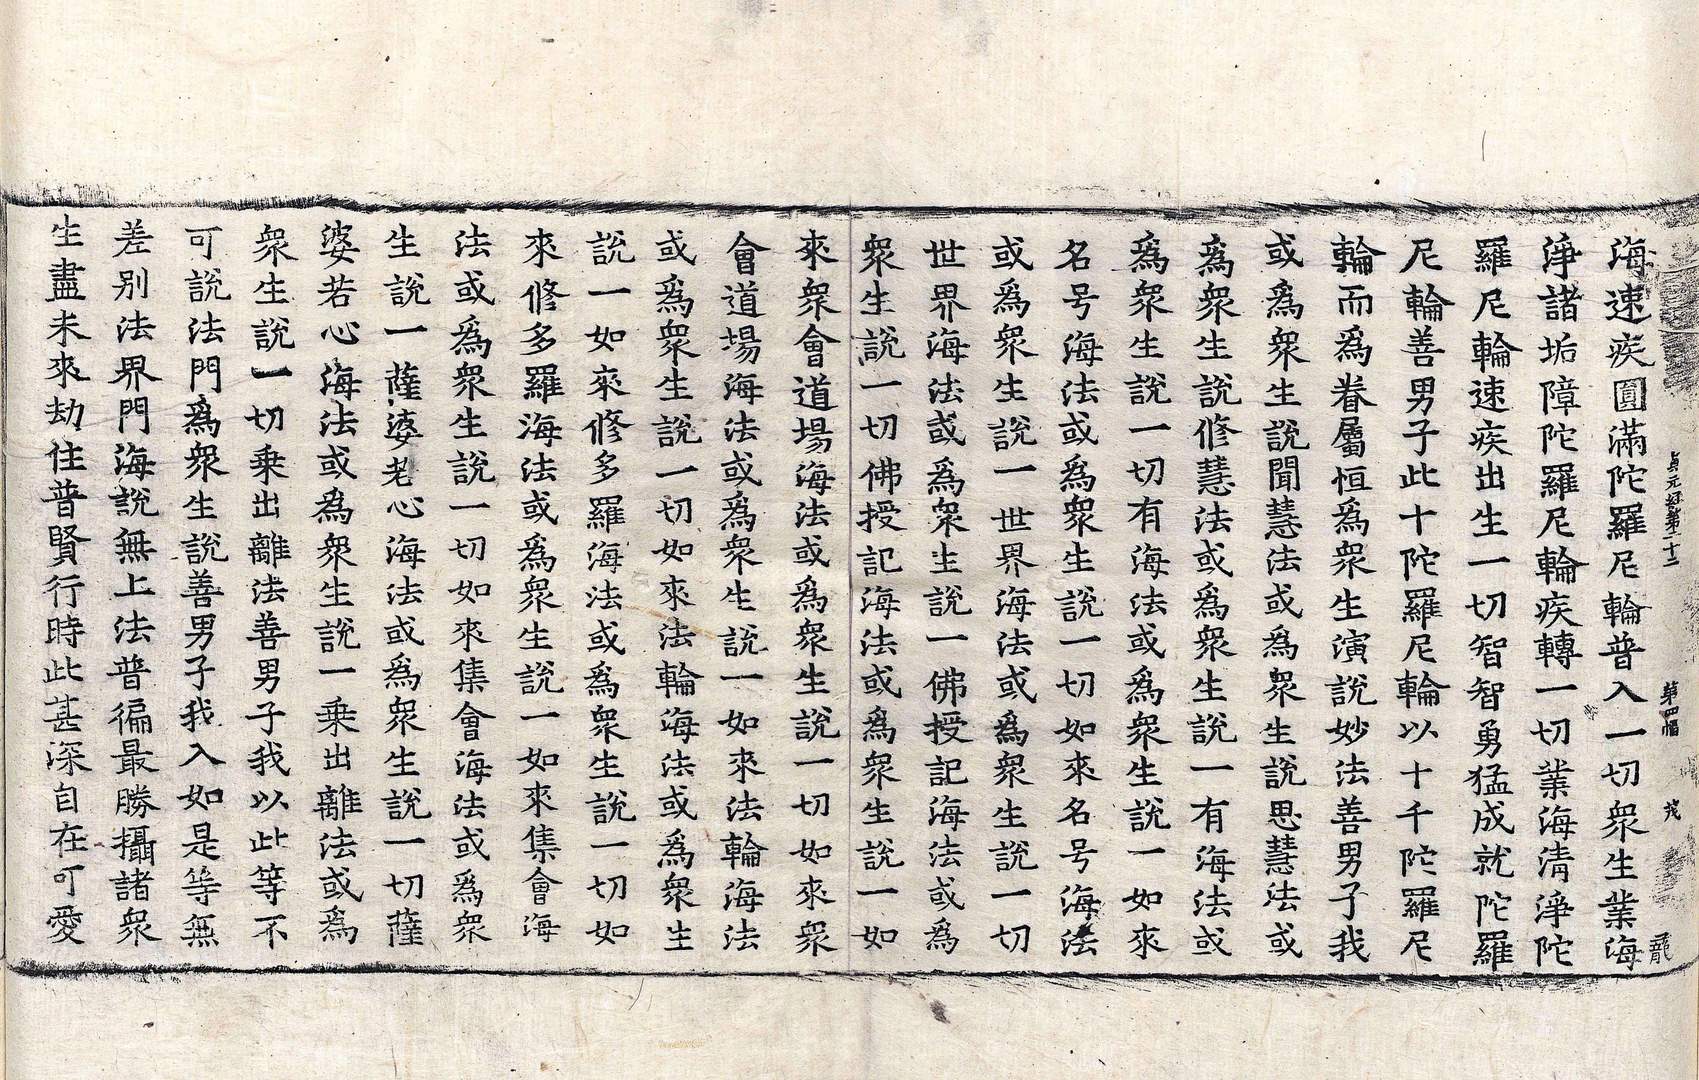 貞元經第二十二 第四幅 茂 龍
海速疾圓滿陀羅尼輪普入一切衆生業海
淨諸垢障陀羅尼輪疾轉一切業海清淨陀
羅尼輪速疾出生一切智智勇猛成就陀羅
尼輪善男子此十陀羅尼輪以十千陀羅尼
輪而爲眷屬恒爲衆生演說妙法善男子我
或爲衆生說聞慧法或爲衆生說思慧法或
爲衆生說修慧法或爲衆生說一有海法或
爲衆生說一切有海法或爲衆生說一如來
名号海法或爲衆生說一切如來名号海法
或爲衆生說一世界海法或爲衆生說一切
世界海法或爲衆生說一佛授記海法或爲
衆生說一切佛授記海法或爲衆生說一如
來衆會道場海法或爲衆生說一切如來衆
會道場海法或爲衆生說一如來法輪海法
或爲衆生說一切如來法輪海法或爲衆生
說一如來修多羅海法或爲衆生說一切如
來修多羅海法或爲衆生說一如來集會海
法或爲衆生說一切如來集會海法或爲衆
生說一薩婆若心海法或爲衆生說一切薩
婆若心海法或爲衆生說一乘出離法或爲
衆生說一切乘出離法善男子我以此等不
可說法門爲衆生說善男子我入如是等無
差別法界門海說無上法普徧最勝攝諸衆
生盡未來劫住普賢行時此甚深自在可愛